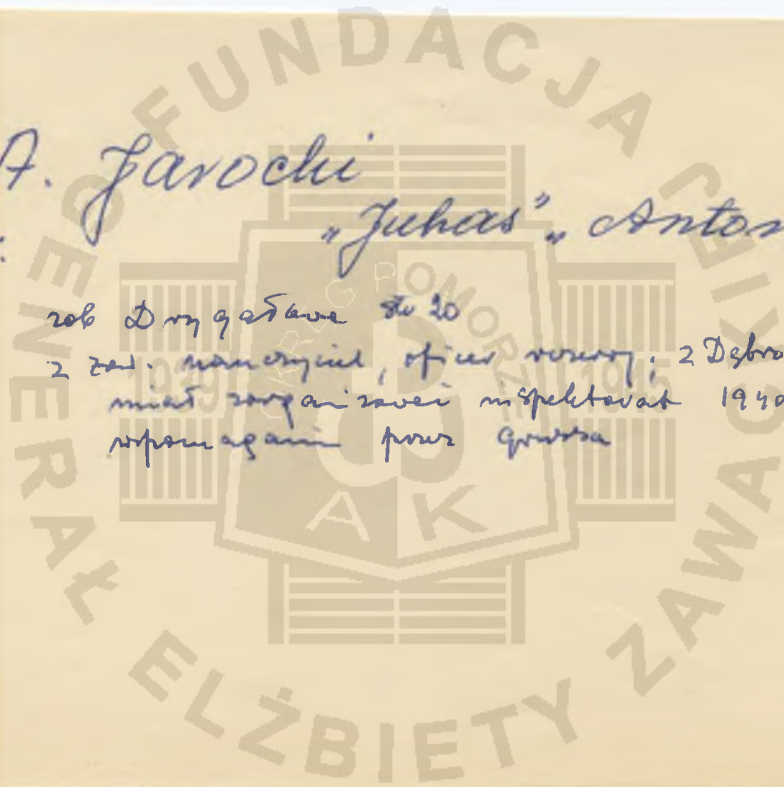 A. Jarocki
: "Juhas", "Anton
zob Drygałowa str 20
z zaw. nauczyciel, oficer rezerwy; z Dąbro
miał zorganizować inspektorat 1940
wspomagani przez Grussa
FUNDACJA GENERAŁ ELŻBIETY ZAWACKIEJ
OKRĘG POMORZE
1939 1945
AK